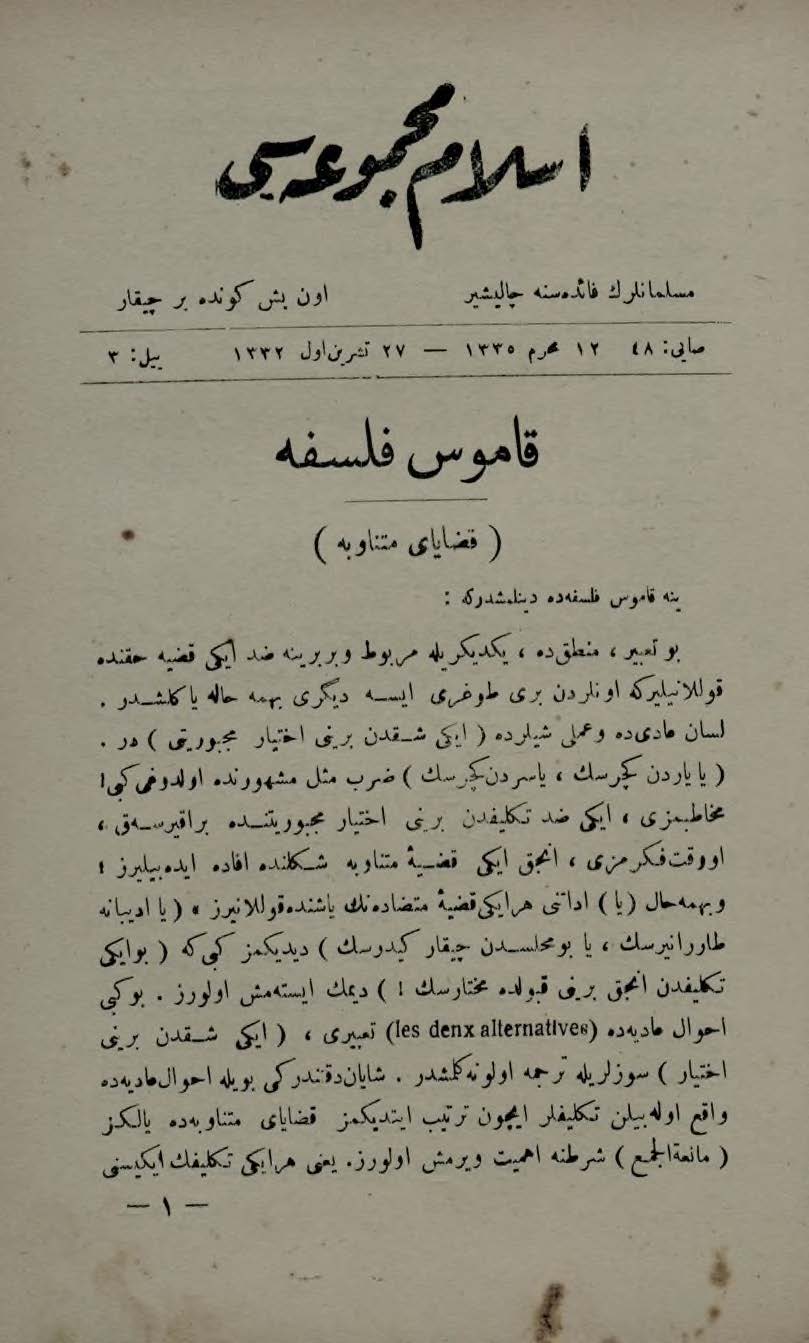 اسلام مجموعه‌سی
مسلمانلرك فائده‌سنه چالیشیر اون بش كونده بر چیقار
صایی: ٤٨ ١٢ محرم ١٣٣٥ — ٢٧ تشرین اول ١٣٣٢ ییل: ٣
قاموس فلسفه
( قضایای متناوبه )
ینه قاموس فلسفه‌ده دینلمشدركه :
بو تعبیر ، منطق‌ده ، یكدیكریله مربوط وبربرینه ضد ایكی قضیه حقنده
قوللانیلیركه اونلردن بری طوغری ایسه دیگری بهمه حاله یاكلشدر .
لسان عادی‌ده وعملی شیلرده ( ایكی شقدن برینی اختیار مجبوریتی ) در .
( یا یاردن كچرسك ، یاسردن كچرسك ) ضرب مثل مشهورنده اولدوغی كبی !
مخاطبمزی ، ایكی ضد تكلیفدن برینی اختیار مجبوریتنده براقیرسه‌ق ،
اووقت فكرمزی ، انجق ایكی قضیهٔ متناوبه شكلنده افاده ایده‌بیلیرز !
وبهمه‌حال (یا) اداتنی هرایكی قضیهٔ متضاده‌نك باشنده قوللانیرز ، ( یا ادیبانه
طاورانیرسك ، یا بومجلسدن چیقار كیدرسك ) دیدیكمز كبی كه ( بوایكی
تكلیفدن انجق برینی قبولده مختارسك ! ) دیمك ایسته‌مش اولورز . بو كبی
احوال عادیه‌ده (les denx alternatives) تعبیری ، ( ایكی شقدن برینی
اختیار ) سوزلریله ترجمه اولونه‌كلمشدر . شایان دقتدركی بویله احوال عادیه‌ده
واقع اوله‌بیلن تكلیفلر ایچون ترتیب ایتدیكمز قضایای متناوبه‌ده یالكز
( مانعة‌الجمع ) شرطنه اهمیت ویرمش اولورز. یعنی هرایكی تكلیفك ایكیسنی
— ١ —